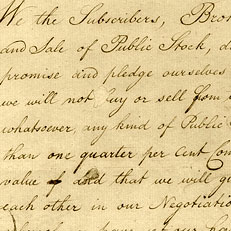 We the Subscribers, Bro
and Sale of Public Stock, d
promise and pledge ourselves
we will not buy or sell from
whatsoever, any kind of Public
than one quarter per cent Com
value & and that we will gi
each other in our Negotiatio